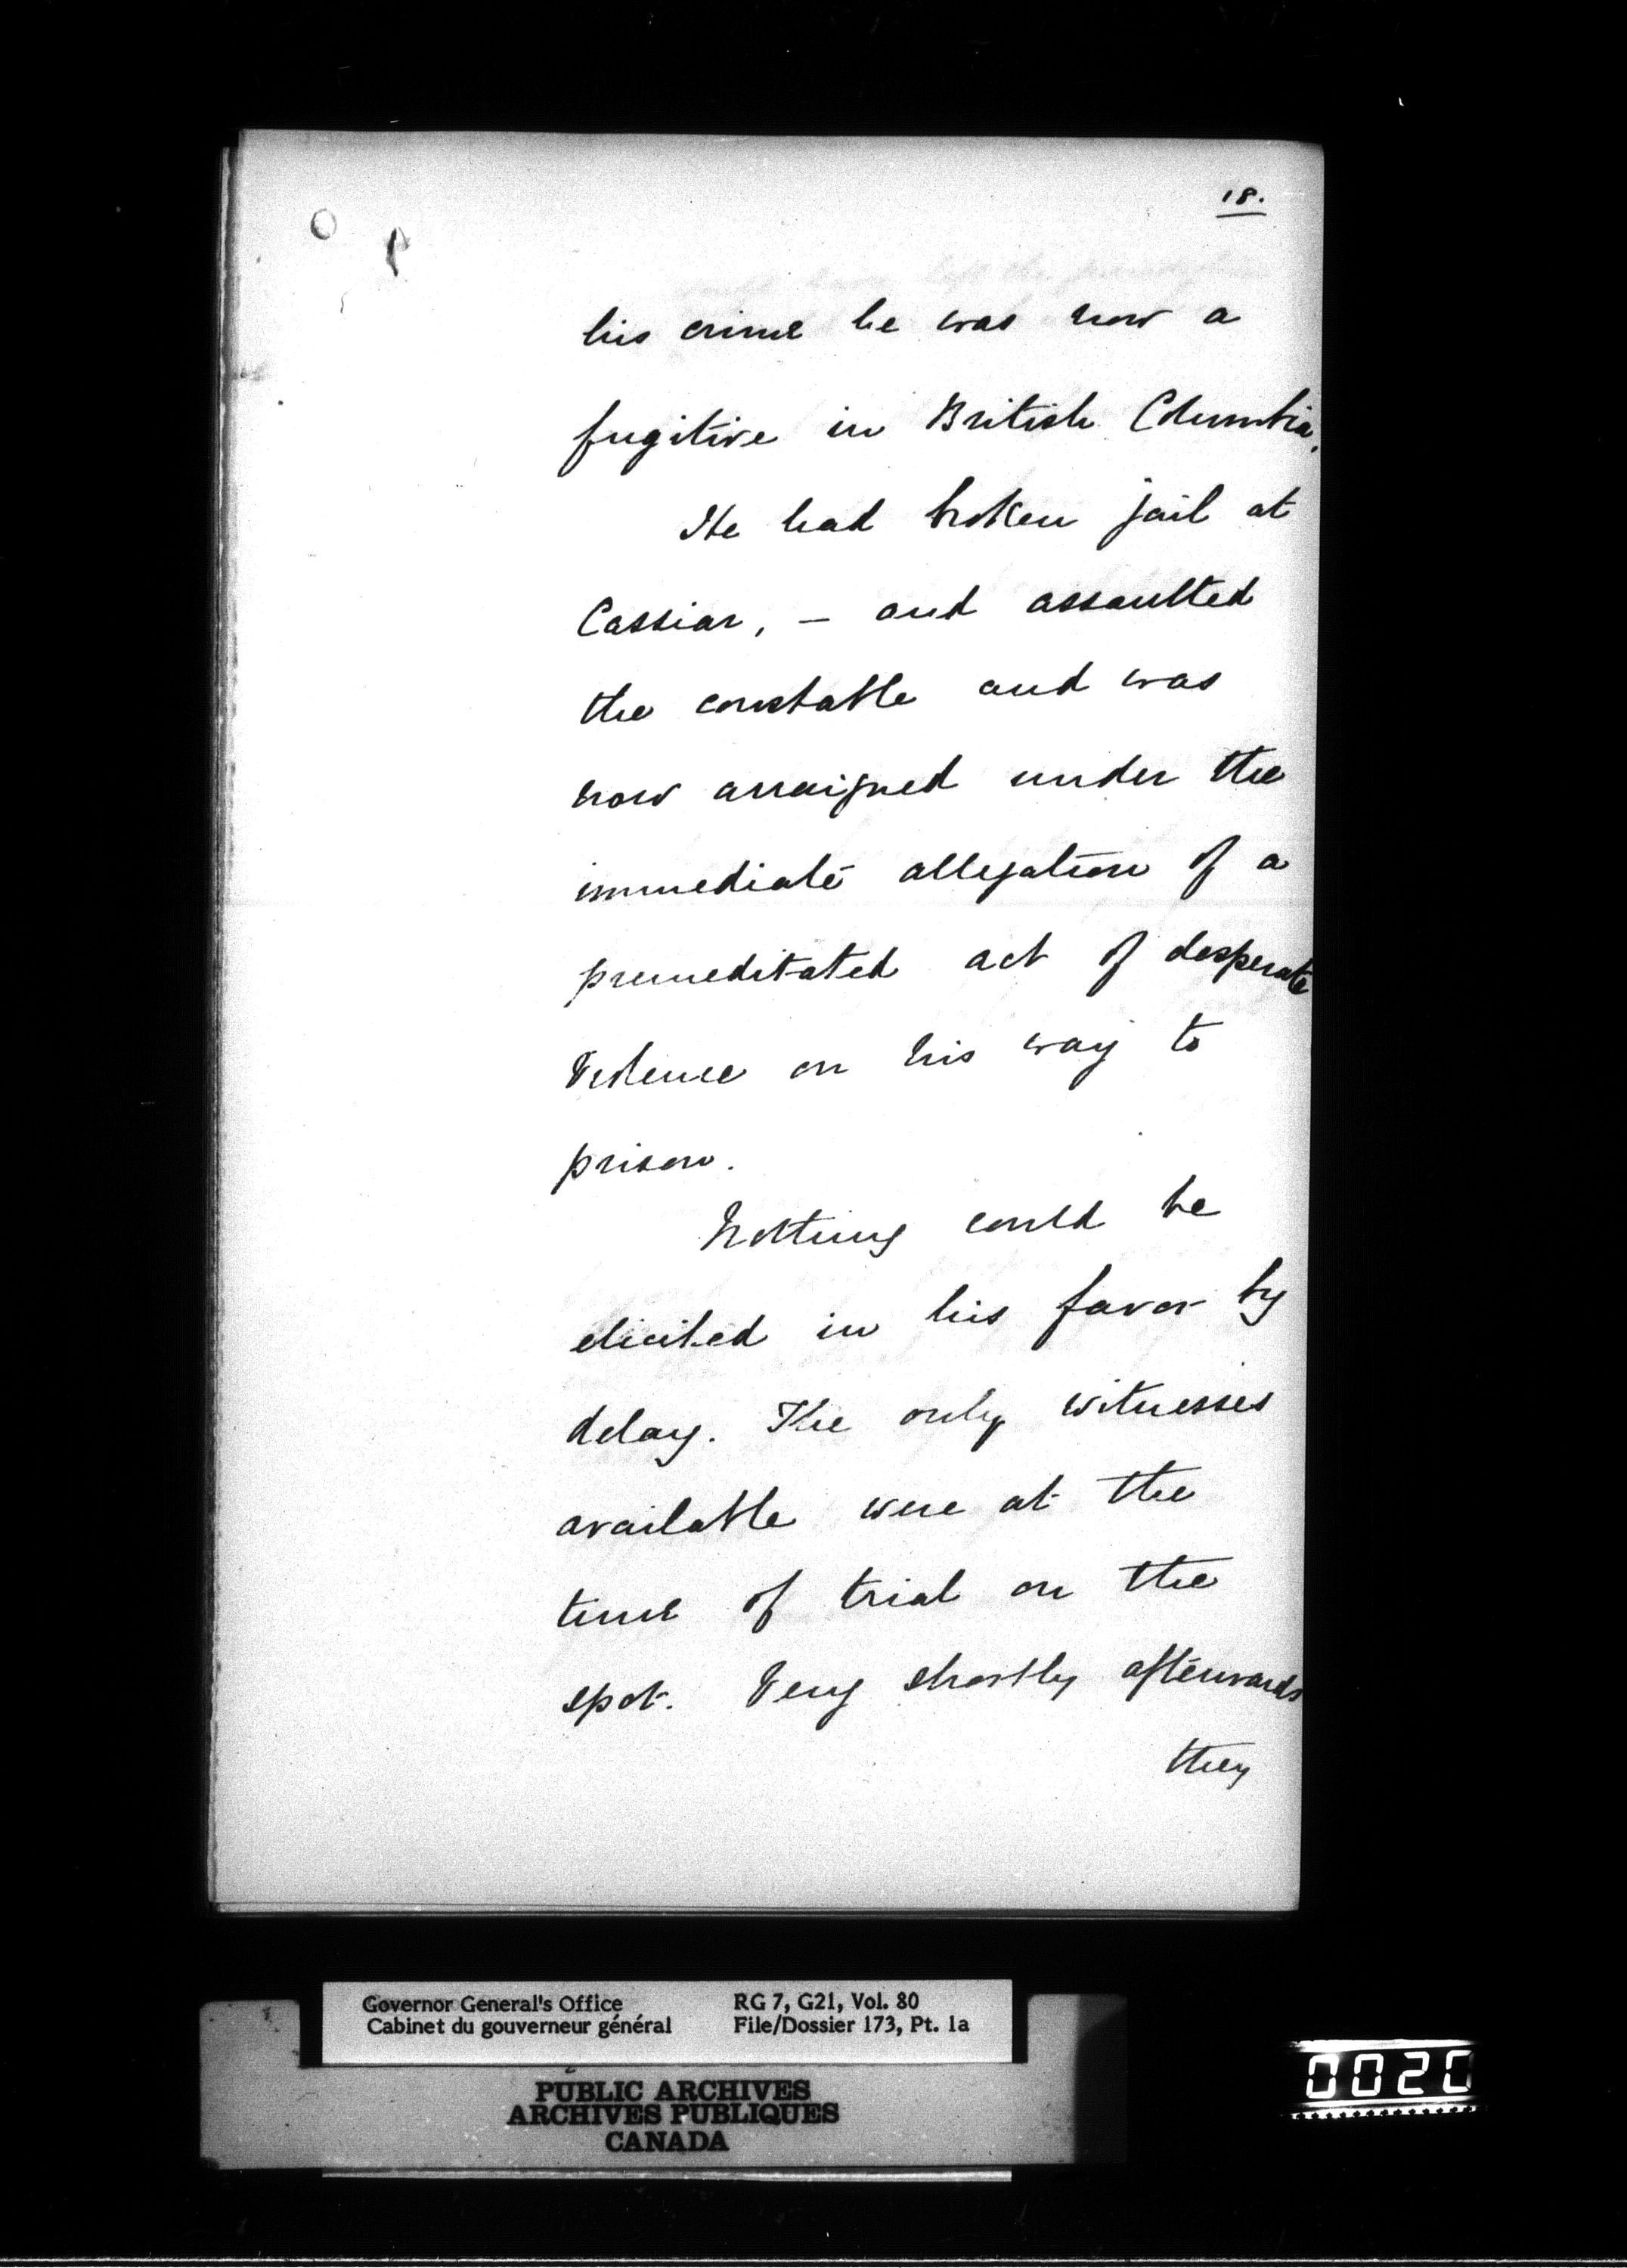 18.
his crime he was now a
fugitive in British Columbia.
He had broken jail at
Cassiar, – and assaulted
the constable and was
now arraigned under the
immediate allegation of a
premeditated act of desperate
violence on his way to
prison.
Nothing could be
elicited in his favor by
delay. The only witnesses
available were at the
time of trial on the
spot. Very shortly afterwards
they
Governor General's Office RG 7, G21, Vol. 80
Cabinet du gouverneur général File/Dossier 173, Pt. 1a
PUBLIC ARCHIVES
ARCHIVES PUBLIQUES
CANADA
0020